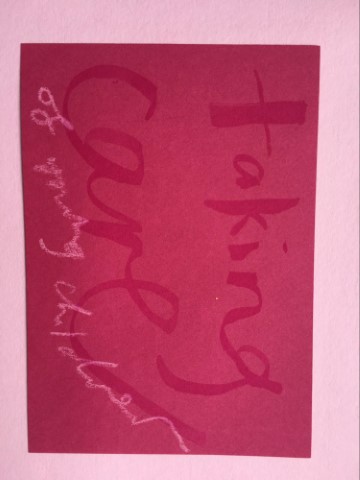 taking
care
of my children